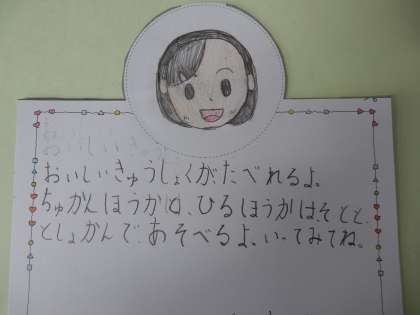 おいしいきゅうしょくが、たべれるよ。
ちゅかんほうかと、ひるほうかは、そとと、
としょかんで、あそべるよ、いってみてね。